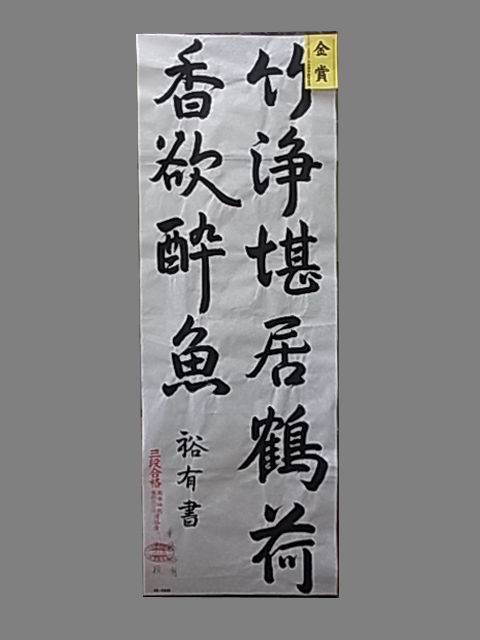 金賞
竹浄堪居鶴荷
香欲酔魚
裕有書
三段合格